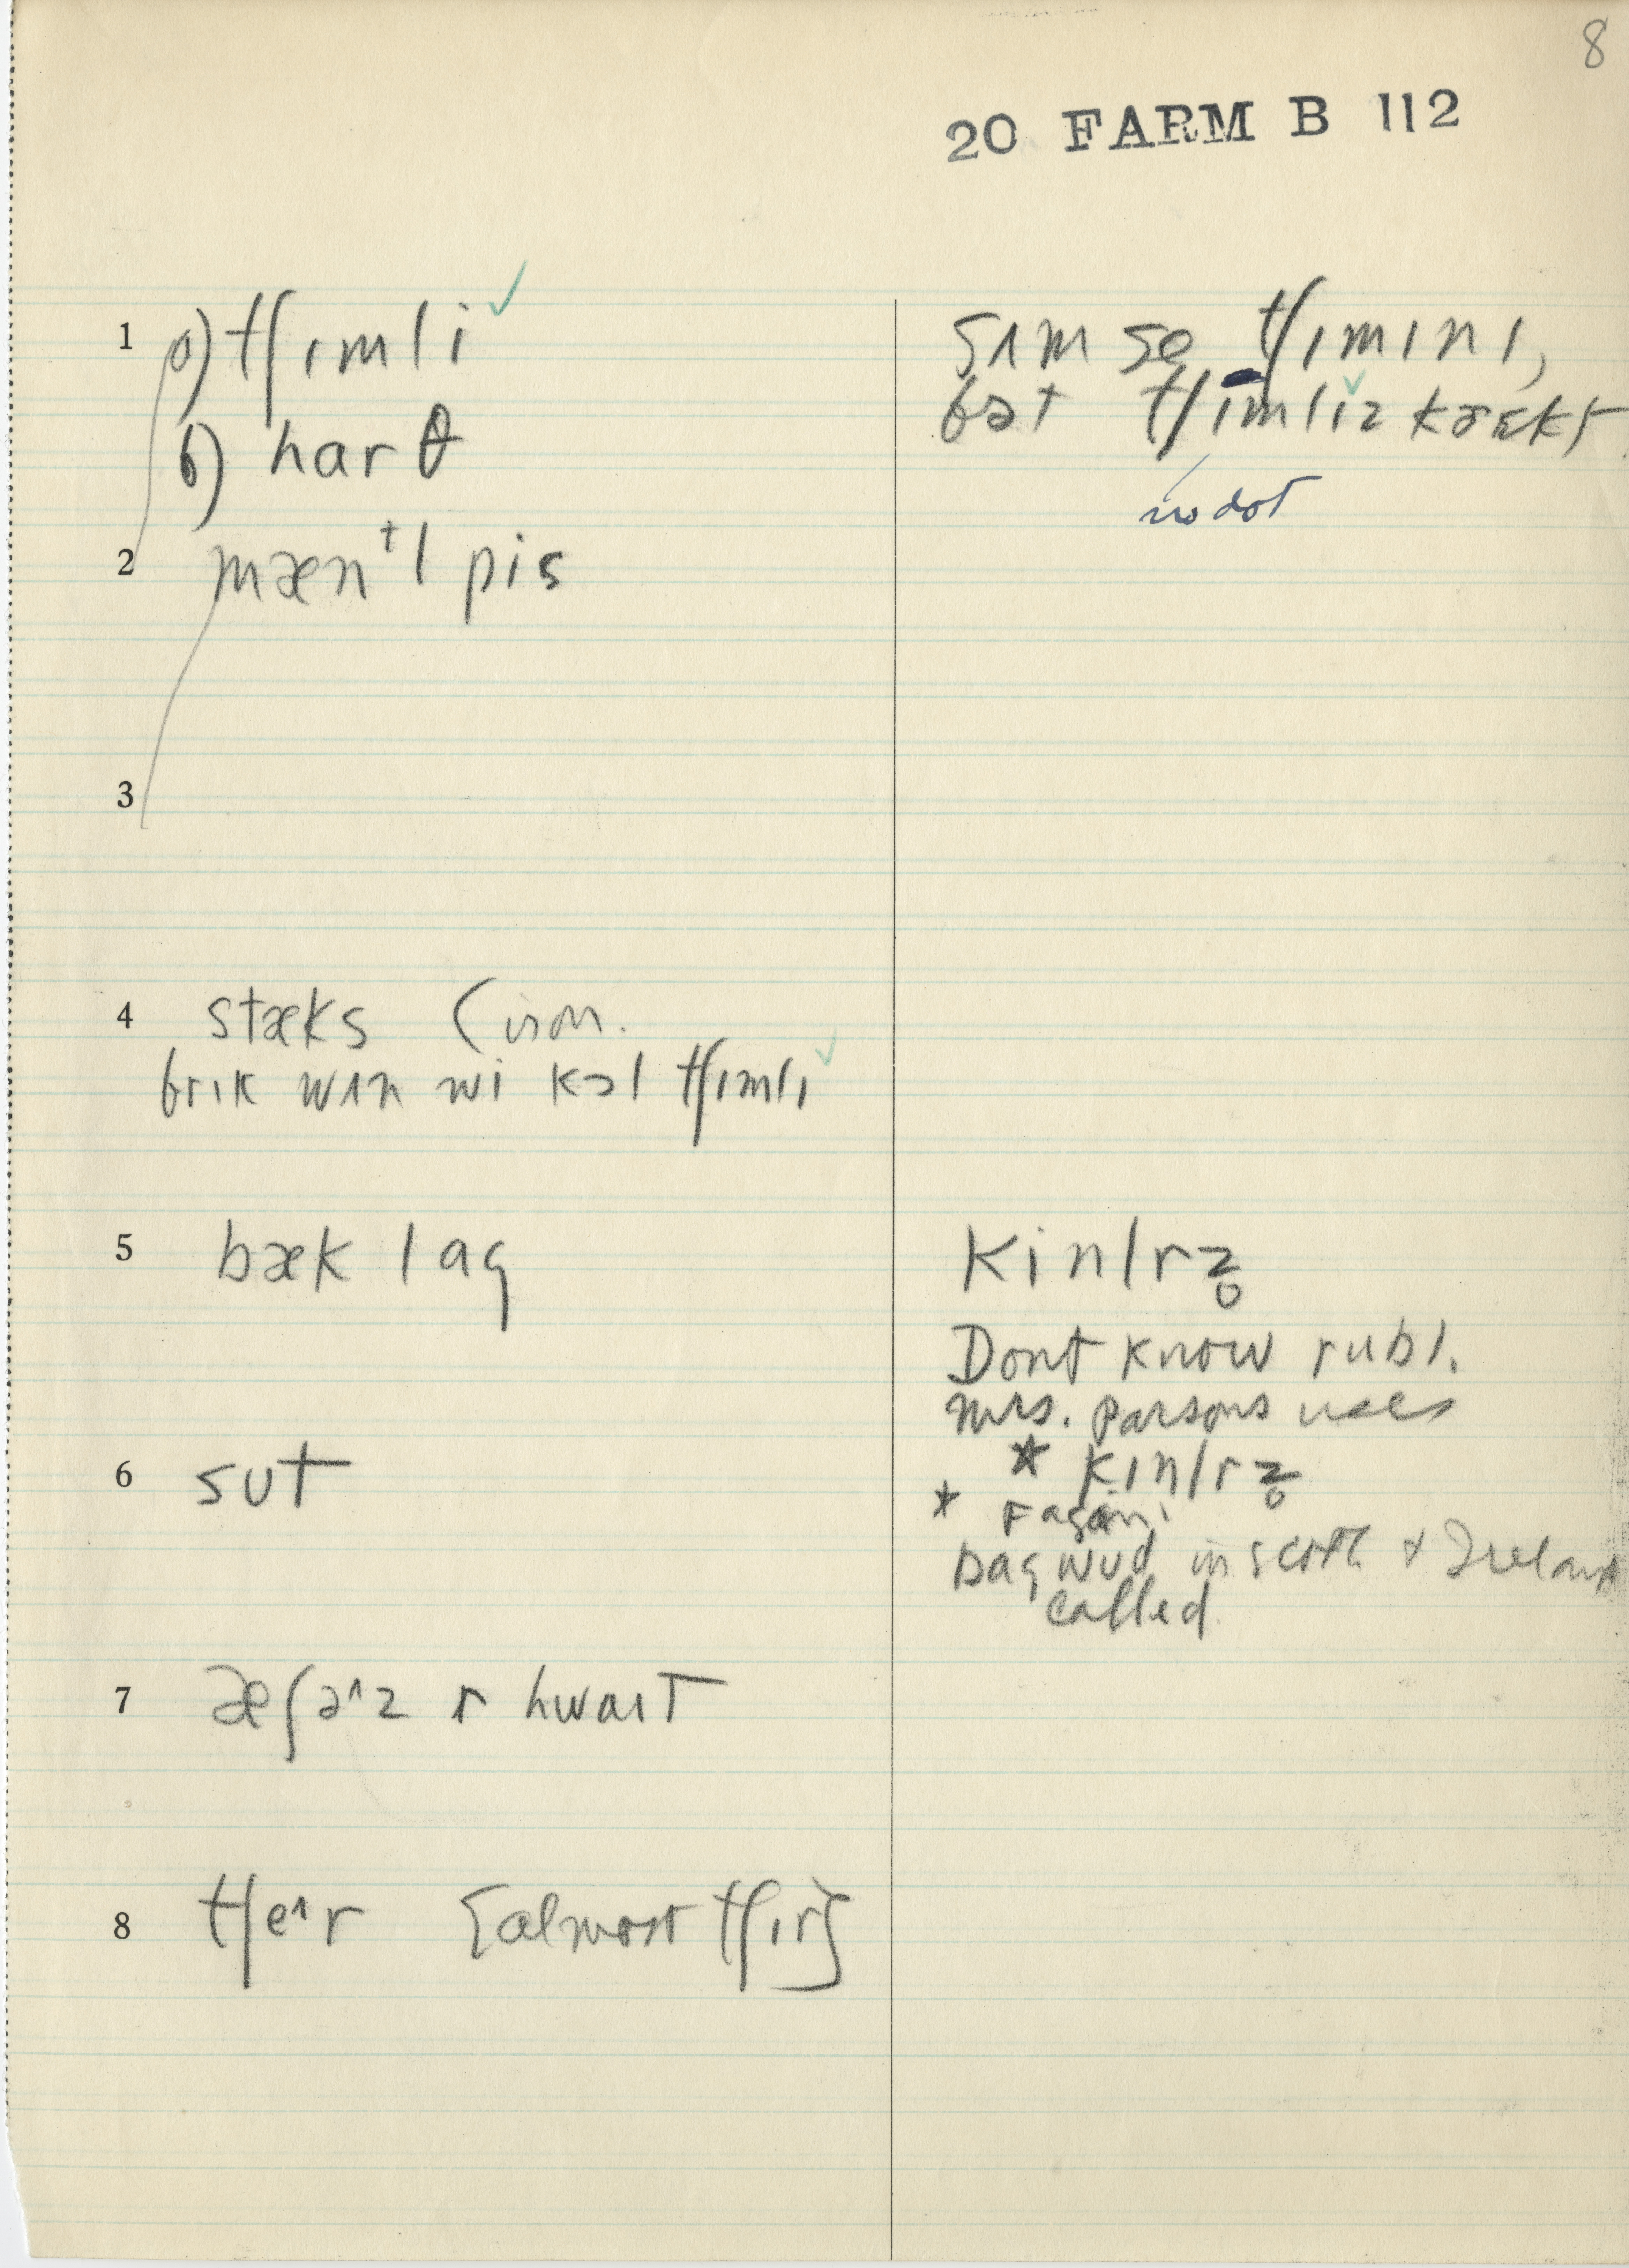 8
20 FARM B 112
1 a) tʃɪmli ✓
b) harθ
2 mænᵗl pis
3
4 stæks (iron.
brik wʌn wi kɔl tʃɪmlɪ ✓
5 bæk lag
6 sut
7 æʃə^z r hwaɪt
8 tʃe^r [almost tʃɪr]
sʌm se tʃɪmɪnɪ,
bət tʃɪmliz kərɛkt
no dot
kinlrz̥
Dont know rubl.
Mrs. Parsons uses
* kɪnlrz̥
*
bag wud in Scotl & Ireland
called